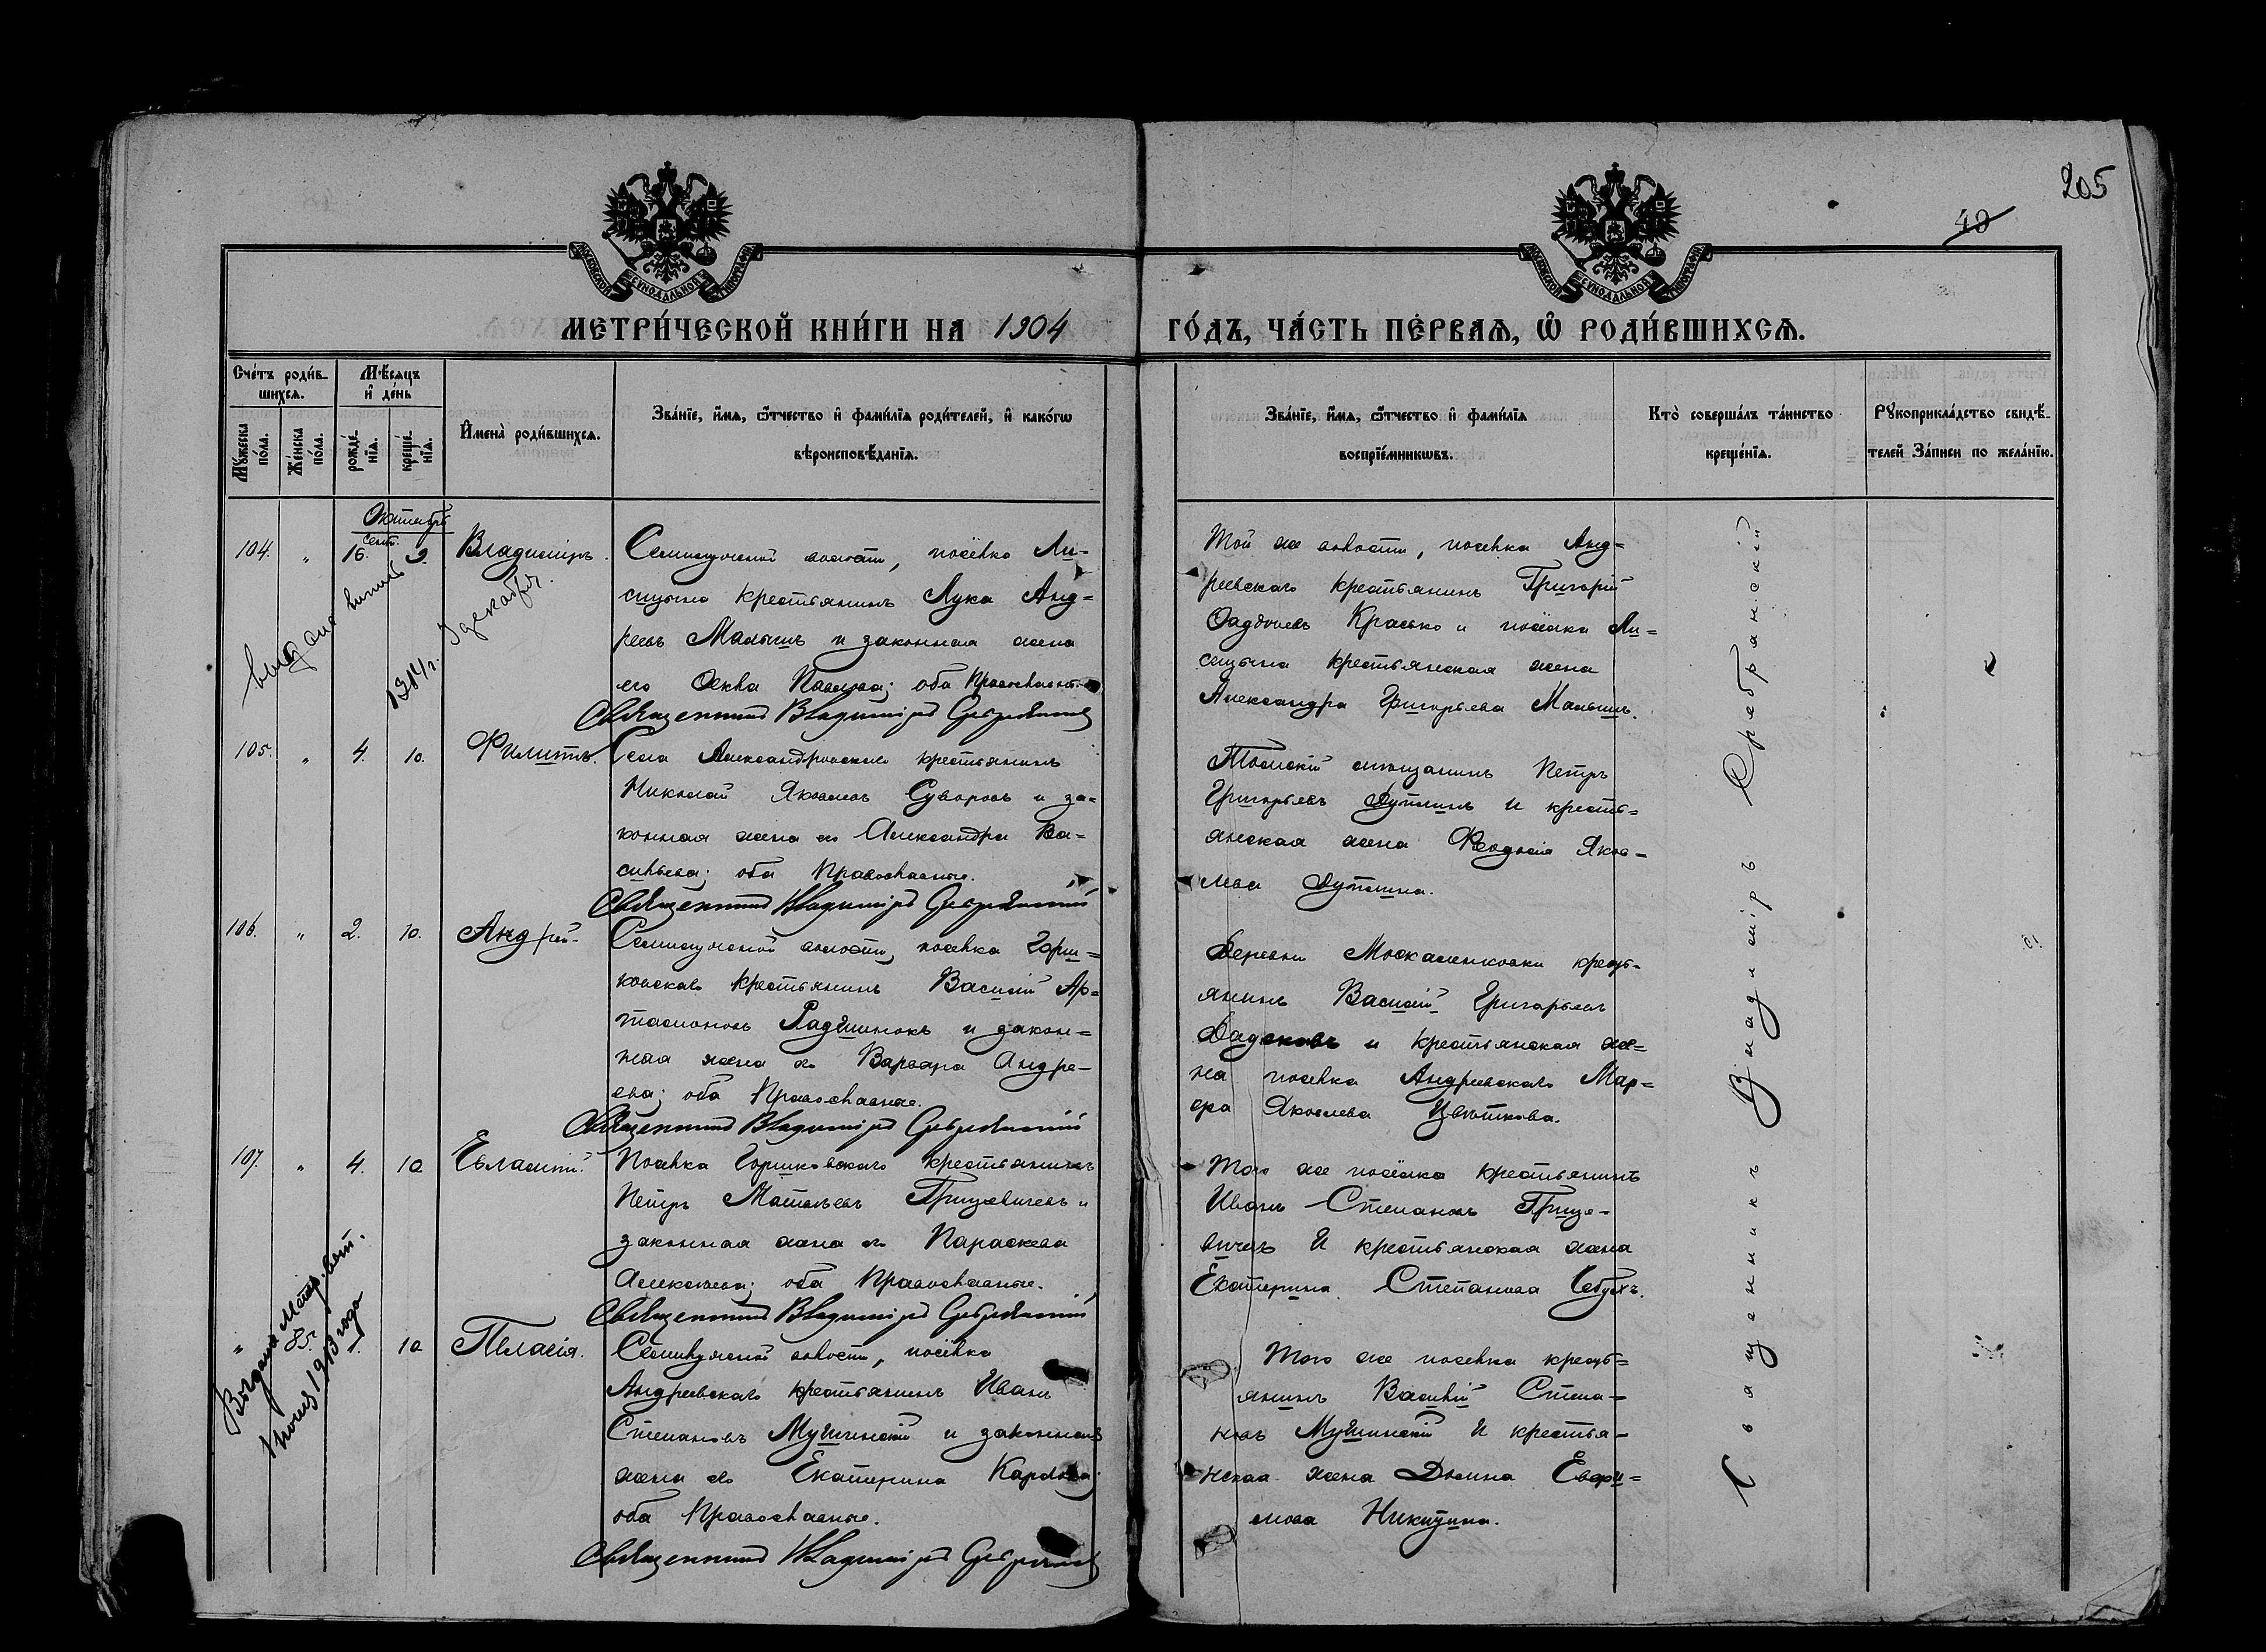 205
40
МОСКОВСКОЙ СѴНОДАЛЬНОЙ ТИПОГРАФІИ
МОСКОВСКОЙ СѴНОДАЛЬНОЙ ТИПОГРАФІИ
МЕТРИ́ЧЕСКОЙ КНИ́ГИ НА 1904 ГО́ДЪ, ЧА́СТЬ ПЕ́РВАѦ, Ѽ РОДИ́ВШИХСѦ.
Сче́тъ роди́в-
шихсѧ.
Мꙋ́жеска по́ла.
Же́нска по́ла.
Мѣ́сѧцъ
и҆ де́нь
рожде́-
нїѧ.
креще́-
нїѧ.
И҆мена̀ роди́вшихсѧ.
Зва́нїе, и҆́мѧ, ѻ҆́тчество и҆ фами́лїѧ роди́телей, и҆ како́гѡ
вѣроисповѣ́данїѧ.
Зва́нїе, и҆́мѧ, ѻ҆́тчество и҆ фами́лїѧ
воспрїе́мникѡвъ.
Кто̀ соверша́лъ та́инство
креще́нїѧ.
Рꙋкоприкла́дство свидѣ́-
телей За́писи по жела́нїю.
Октябрь
104. " Сент. 16. 3. Владиміръ.
посёлка Ли-
крестьянинъ Лука Анд-
реевъ Малышъ и законная жена
его Павлова; оба Православн.
Священникъ Владиміръ Серебрянскій
Той же волости, поселка Анд-
реевскаго крестьянинъ Григорій
Красько и посёлка Ли-
крестьянская жена
Александра Григорьева Малышъ.
1914 г. 9 декабря.
105. " 4. 10. Филиппъ.
Села Александровскаго крестьянинъ
Николай Яковлевъ Суворовъ и за-
конная жена его Александра Ва-
сильева; оба Православные.
Священникъ Владиміръ Серебрянскій
Томскій мѣщанинъ Петръ
Григорьевъ и кресть-
янская жена Яков-
лева
106. " 2. 10. Андрей.
волости, поселка Горш-
ковскаго крестьянинъ Василій Ар-
тамоновъ и закон-
ная жена его Варвара Андре-
ева; оба Православные.
Священникъ Владиміръ Серебрянскій
Деревни Москаленковки кресть-
янинъ Василій Григорьевъ
и крестьянская же-
на поселка Андреевскаго Мар-
фа Яковлева Цвѣткова.
107. " 4. 10 Евлампій.
Поселка Горшковскаго крестьянинъ
Петръ Матвѣевъ Грицевичевъ и
законная жена его Параскева
Алексѣева; оба Православные.
Священникъ Владиміръ Серебрянскій
Того же посёлка крестьянинъ
Иванъ Степановъ Грице-
вичевъ и крестьянская жена
Екатерина Степанова
" 85. 1. 10 Пелагія.
волости, посёлка
Андреевскаго крестьянинъ Иванъ
Степановъ Мушинскій и законная
жена его Екатерина Карпова;
оба Православные.
Священникъ Владиміръ Серебрянскій
Того же поселка кресть-
янинъ Василій Степа-
новъ Мушинскій и крестья-
нская жена Домна Евфи-
мова Никитина.
1913 года
Священникъ Владиміръ Серебрянскій